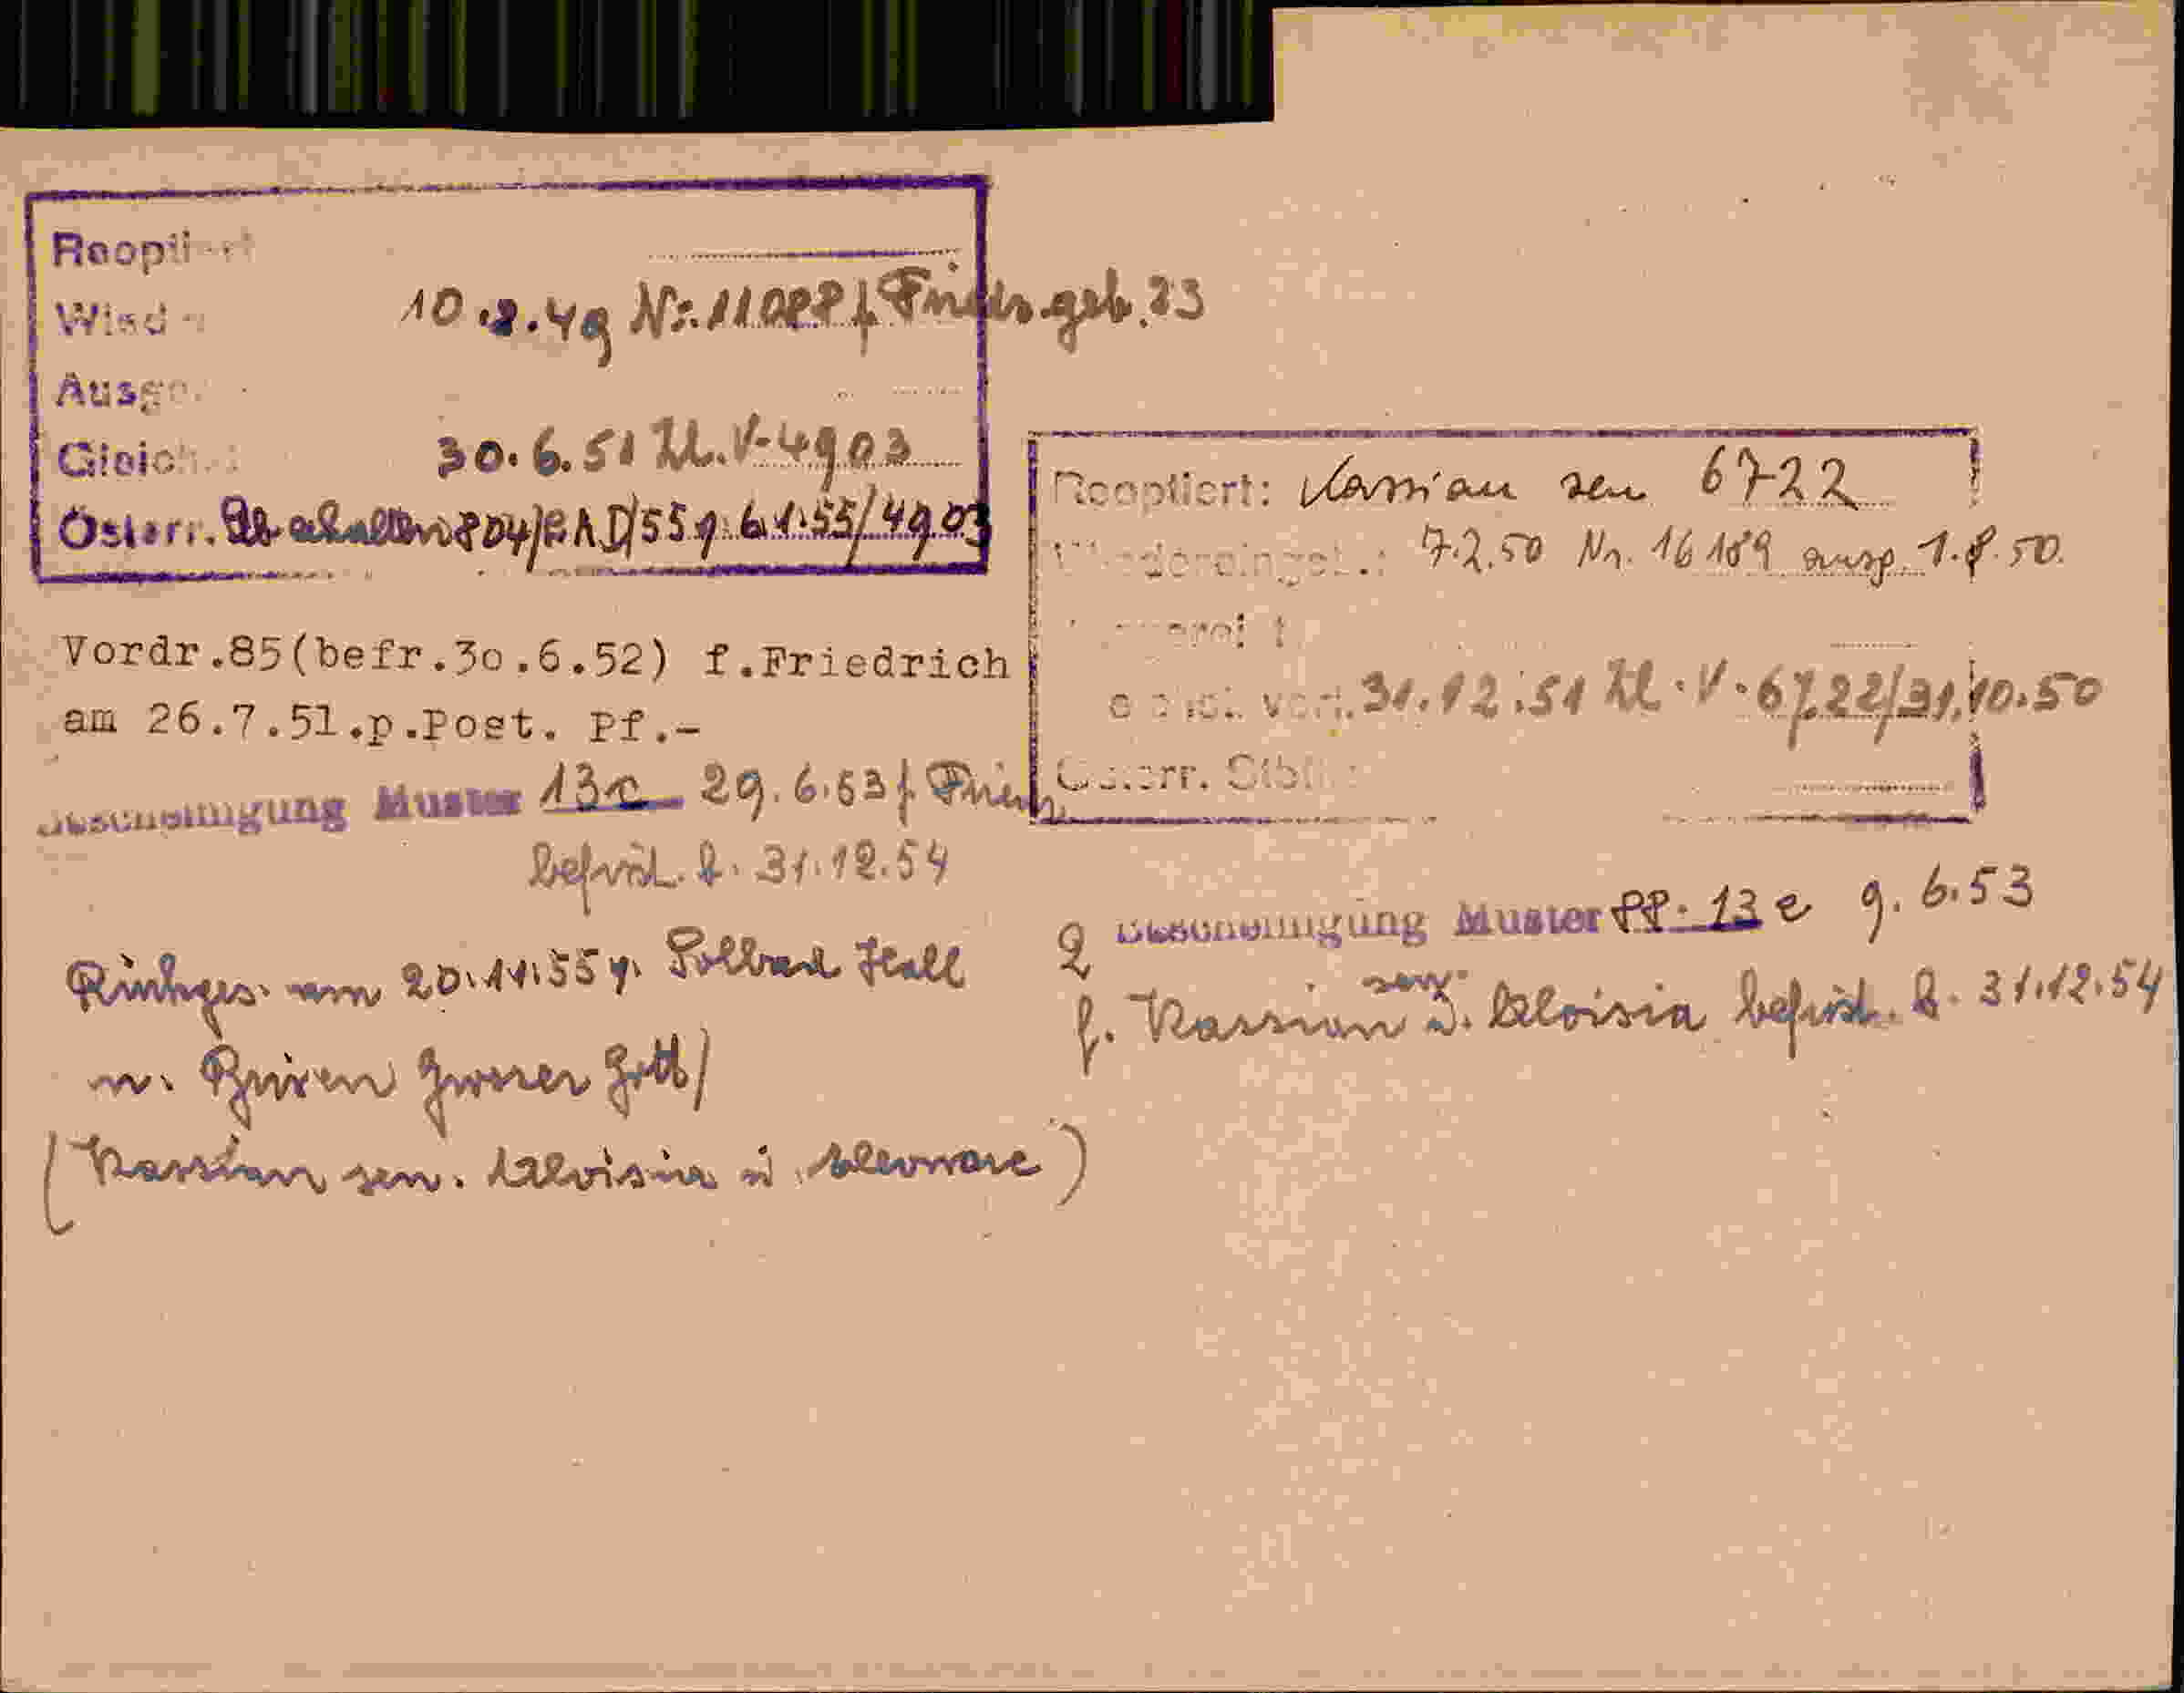 Reoptiert
10.2.49 Nr. 11088 f. Friedr. geb. 23
30.6.51 Zl. V-4903
Österr. Stb erhalten 804/BAD/55 v. 6.1.55/4903
Vordr.85(befr.3o.6.52) f.Friedrich
am 26.7.51.p.Post. Pf.-
Bescheinigung Muster 13c 29.6.53 f. Friedr.
befrist. b. 31.12.54
Rückges. am 20.11.55 v. Solbad Hall
n. Brixen
(Kassian sen. Aloisia u. Eleonore)
Reoptiert: Kassian sen 6722
Wiedereingeb.: 7.2.50 Nr. 16189 ausg. 1.8.50.
31.12.51 Zl. V. 6722/31.10.50
Österr. Stb
2 Bescheinigung Muster 13c 9.6.53
f. Kassian sen. u. Aloisia befrist. b. 31.12.54